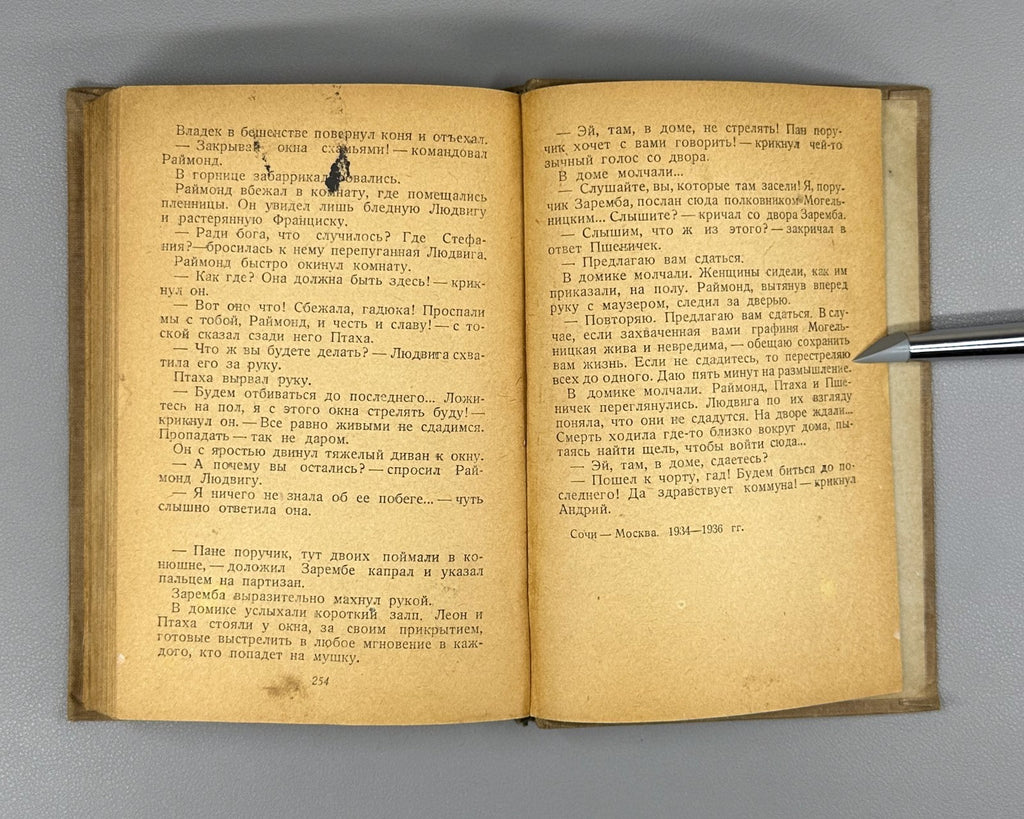 Владек в бешенстве повернул коня и отъехал.
— Закрывай окна скамьями! — командовал
Раймонд.
В горнице забаррикадировались.
Раймонд вбежал в комнату, где помещались
пленницы. Он увидел лишь бледную Людвигу
и растерянную Франциску.
— Ради бога, что случилось? Где Стефа-
ния?—бросилась к нему перепуганная Людвига.
Раймонд быстро окинул комнату.
— Как где? Она должна быть здесь! — крик-
нул он.
— Вот оно что! Сбежала, гадюка! Проспали
мы с тобой, Раймонд, и честь и славу! — с то-
ской сказал сзади него Птаха.
— Что ж вы будете делать? — Людвига схва-
тила его за руку.
Птаха вырвал руку.
— Будем отбиваться до последнего... Ложи-
тесь на пол, я с этого окна стрелять буду! —
крикнул он. — Все равно живыми не сдадимся.
Пропадать — так не даром.
Он с яростью двинул тяжелый диван к окну.
— А почему вы остались? — спросил Рай-
монд Людвигу.
— Я ничего не знала об ее побеге... — чуть
слышно ответила она.
— Пане поручик, тут двоих поймали в ко-
нюшне, — доложил Зарембе капрал и указал
пальцем на партизан.
Заремба выразительно махнул рукой.
В домике услыхали короткий залп. Леон и
Птаха стояли у окна, за своим прикрытием,
готовые выстрелить в любое мгновение в каж-
дого, кто попадет на мушку.
254
— Эй, там, в доме, не стрелять! Пан пору-
чик хочет с вами говорить! — крикнул чей-то
зычный голос со двора.
В доме молчали...
— Слушайте, вы, которые там засели! Я, пору-
чик Заремба, послан сюда полковником Могель-
ницким... Слышите? — кричал со двора Заремба.
— Слышим, что ж из этого? — закричал в
ответ Пшеничек.
— Предлагаю вам сдаться.
В домике молчали. Женщины сидели, как им
приказали, на полу. Раймонд, вытянув вперед
руку с маузером, следил за дверью.
— Повторяю. Предлагаю вам сдаться. В слу-
чае, если захваченная вами графиня Могель-
ницкая жива и невредима, — обещаю сохранить
вам жизнь. Если не сдадитесь, то перестреляю
всех до одного. Даю пять минут на размышление.
В домике молчали. Раймонд, Птаха и Пше-
ничек переглянулись. Людвига по их взгляду
поняла, что они не сдадутся. На дворе ждали...
Смерть ходила где-то близко вокруг дома, пы-
таясь найти щель, чтобы войти сюда...
— Эй, там, в доме, сдаетесь?
— Пошел к чорту, гад! Будем биться до по-
следнего! Да здравствует коммуна! — крикнул
Андрий.
Сочи — Москва. 1934—1936 гг.